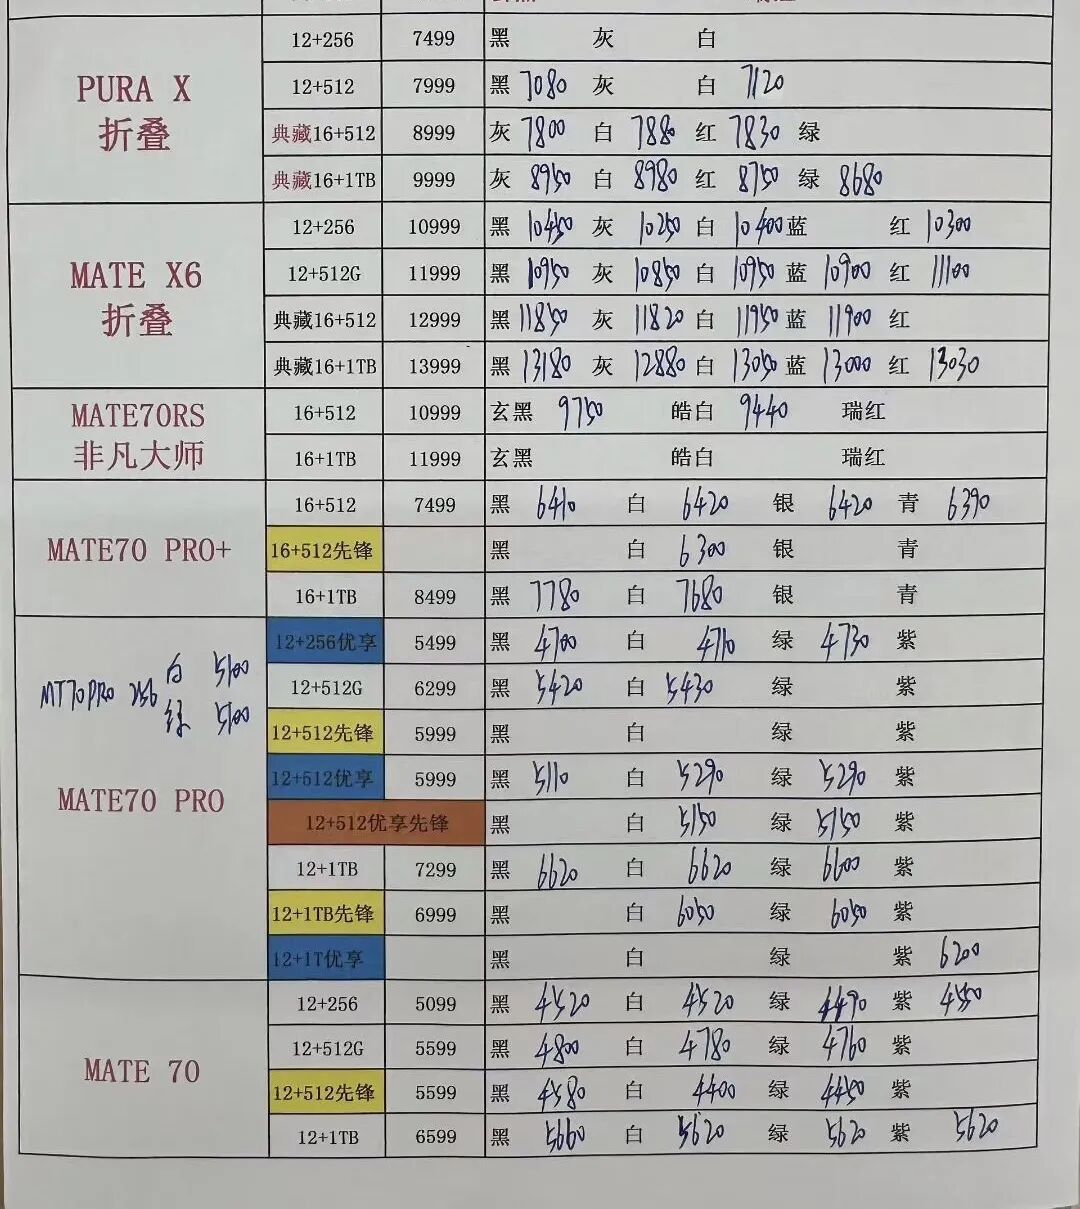 PURA X
折叠
12+256 7499 黑 灰 白
12+512 7999 黑 7080 灰 白 7120
典藏16+512 8999 灰 7800 白 7880 红 7830 绿
典藏16+1TB 9999 灰 8950 白 8980 红 8750 绿 8680
MATE X6
折叠
12+256 10999 黑 10450 灰 10250 白 10400 蓝 红 10300
12+512G 11999 黑 10950 灰 10850 白 10950 蓝 10900 红 11100
典藏16+512 12999 黑 11850 灰 11820 白 11950 蓝 11900 红
典藏16+1TB 13999 黑 13180 灰 12880 白 13050 蓝 13000 红 13030
MATE70RS
非凡大师
16+512 10999 玄黑 9750 皓白 9440 瑞红
16+1TB 11999 玄黑 皓白 瑞红
MATE70 PRO+
16+512 7499 黑 6410 白 6420 银 6420 青 6390
16+512先锋 黑 白 6300 银 青
16+1TB 8499 黑 7780 白 7680 银 青
MT70PRO 256 白 5100
绿 5100
MATE70 PRO
12+256优享 5499 黑 4700 白 4710 绿 4730 紫
12+512G 6299 黑 5420 白 5430 绿 紫
12+512先锋 5999 黑 白 绿 紫
12+512优享 5999 黑 5110 白 5290 绿 5290 紫
12+512优享先锋 黑 白 5150 绿 5150 紫
12+1TB 7299 黑 6620 白 6620 绿 6600 紫
12+1TB先锋 6999 黑 白 6050 绿 6050 紫
12+1T优享 黑 白 绿 紫 6200
MATE 70
12+256 5099 黑 4520 白 4520 绿 4490 紫 4550
12+512G 5599 黑 4800 白 4780 绿 4760 紫
12+512先锋 5599 黑 4580 白 4400 绿 4450 紫
12+1TB 6599 黑 5660 白 5620 绿 5620 紫 5620